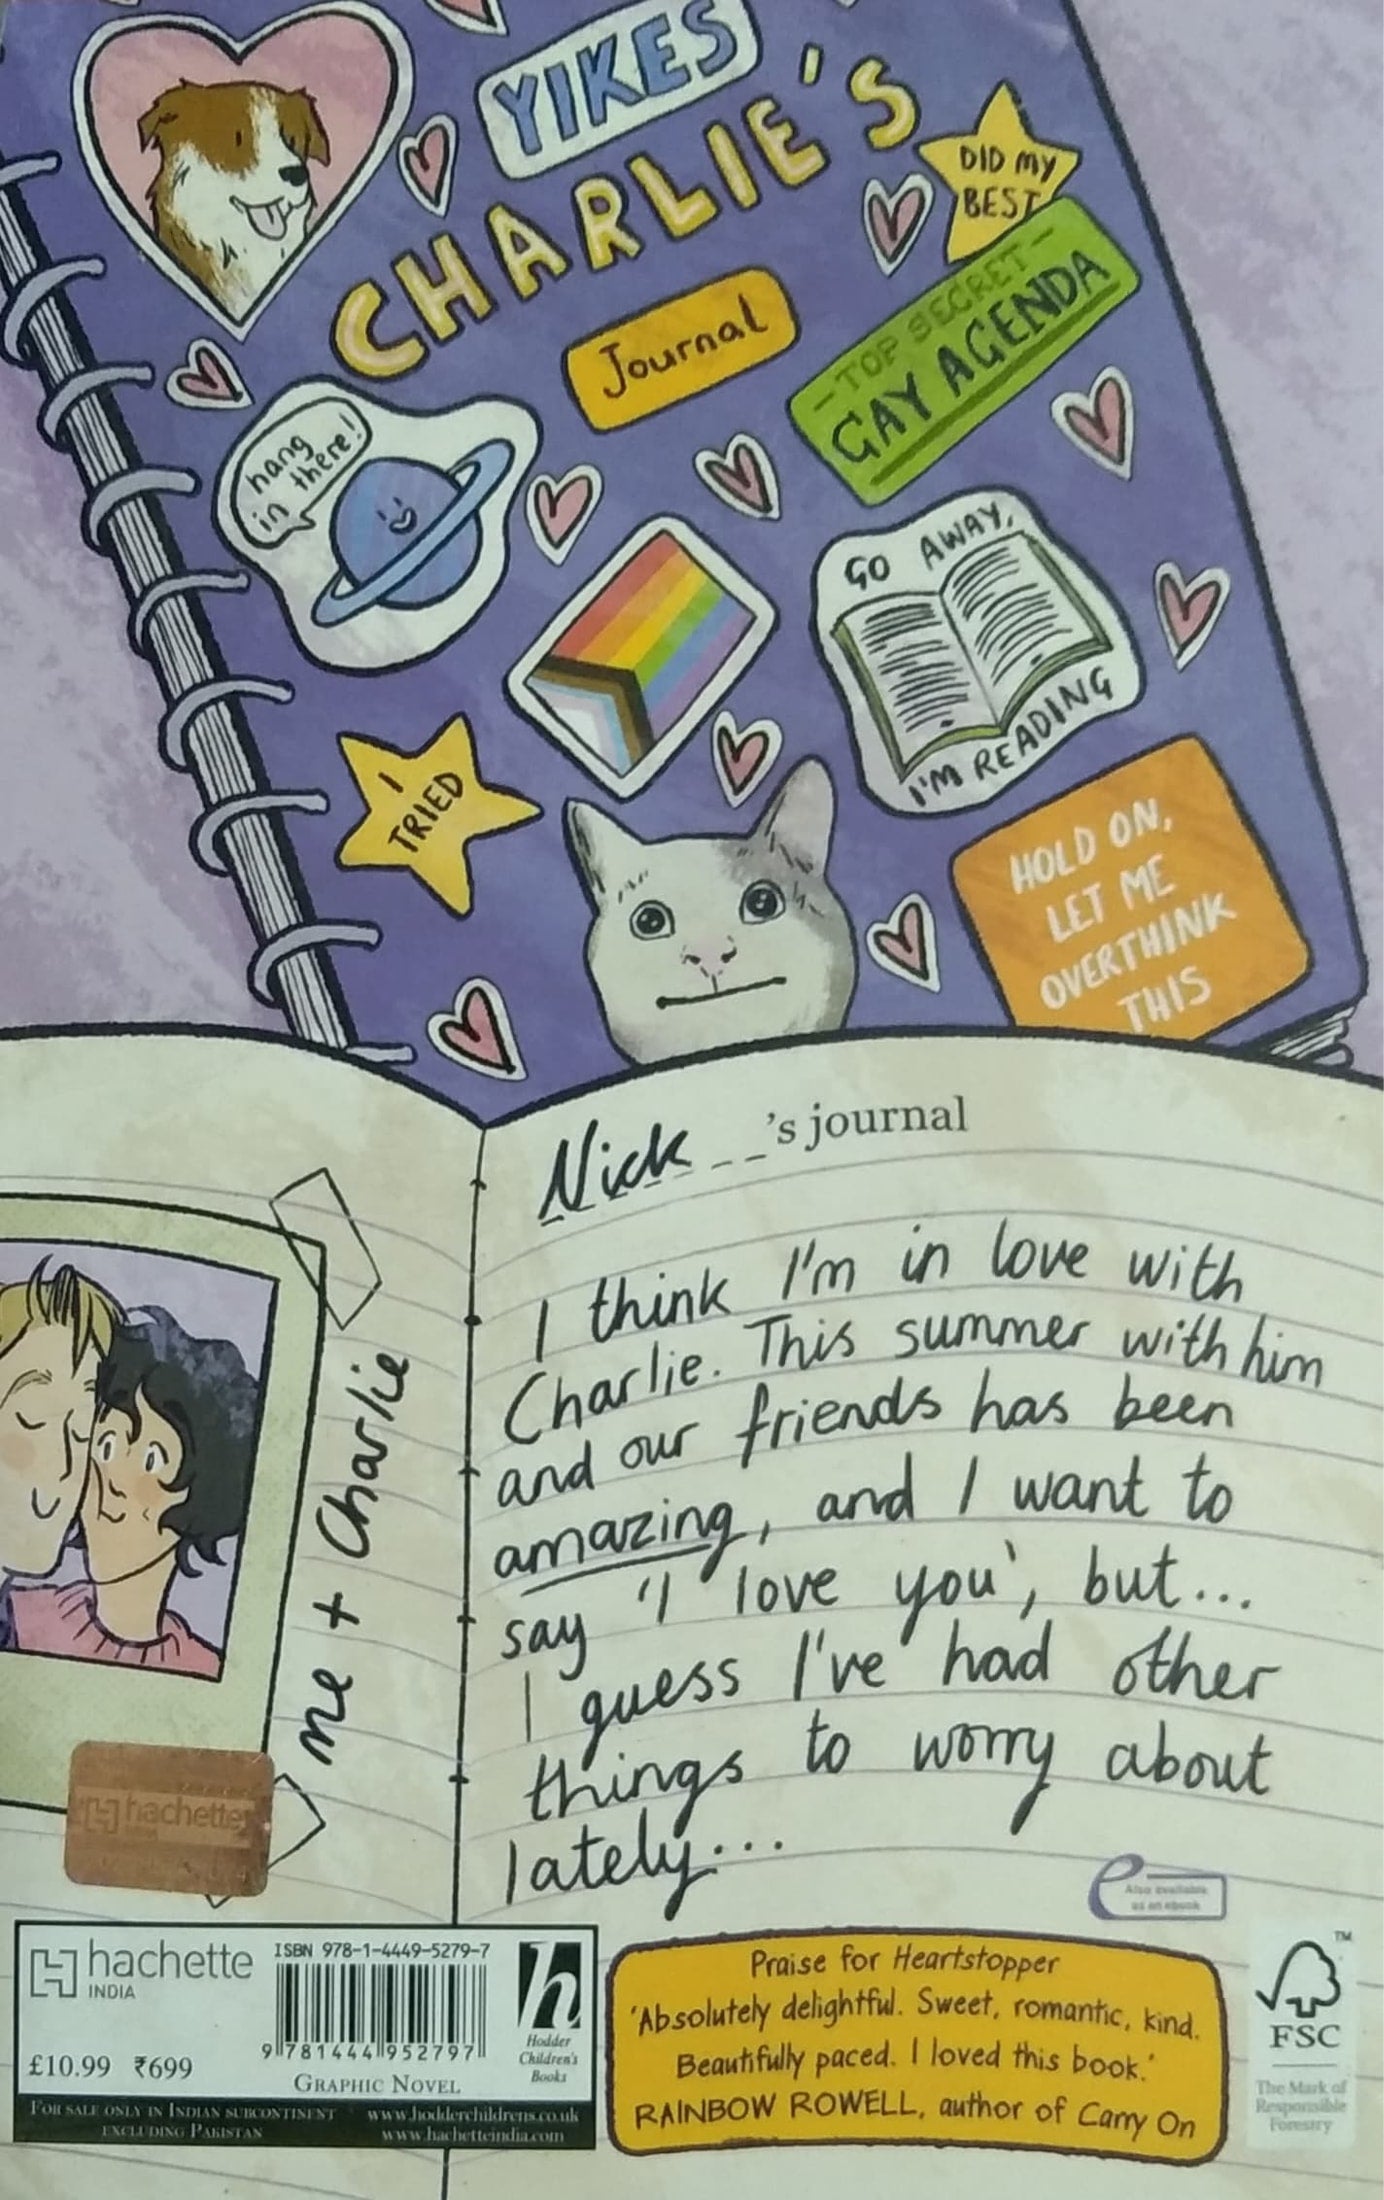 YIKES
CHARLIE'S
Journal
DID MY
BEST
-TOP SECRET-
GAY AGENDA
hang
in there!
GO AWAY,
I'M READING
I
TRIED
HOLD ON,
LET ME
OVERTHINK
THIS
Nick __'s journal
I think I'm in love with
Charlie. This summer with him
and our friends has been
amazing, and I want to
say 'I love you', but...
I guess I've had other
things to worry about
lately...
me + Charlie
hachette
INDIA
e
Also available
as an ebook
hachette
INDIA
£10.99 ₹699
ISBN 978-1-4449-5279-7
9 781444 952797
GRAPHIC NOVEL
h
Hodder
Children's
Books
FOR SALE ONLY IN INDIAN SUBCONTINENT
EXCLUDING PAKISTAN
www.hodderchildrens.co.uk
www.hachetteindia.com
Praise for Heartstopper
'Absolutely delightful. Sweet, romantic, kind.
Beautifully paced. I loved this book.'
RAINBOW ROWELL, author of Carry On
TM
FSC
The Mark of
Responsible
Forestry